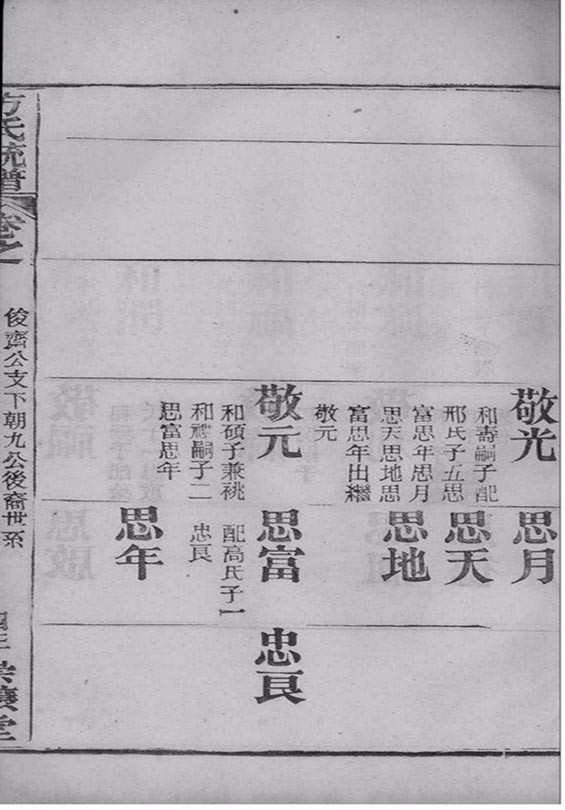 敬光
和壽嗣子配
邢氏子五思
富思年思月
思天思地思
富思年出繼
敬元
敬元
和碩子兼祧
和禮嗣子二
思富思年
思月
思天
思地
思富
配高氏子一
忠良
思年
忠良
方氏統譜
卷之
俊齋公支下朝九公後裔世系
堂